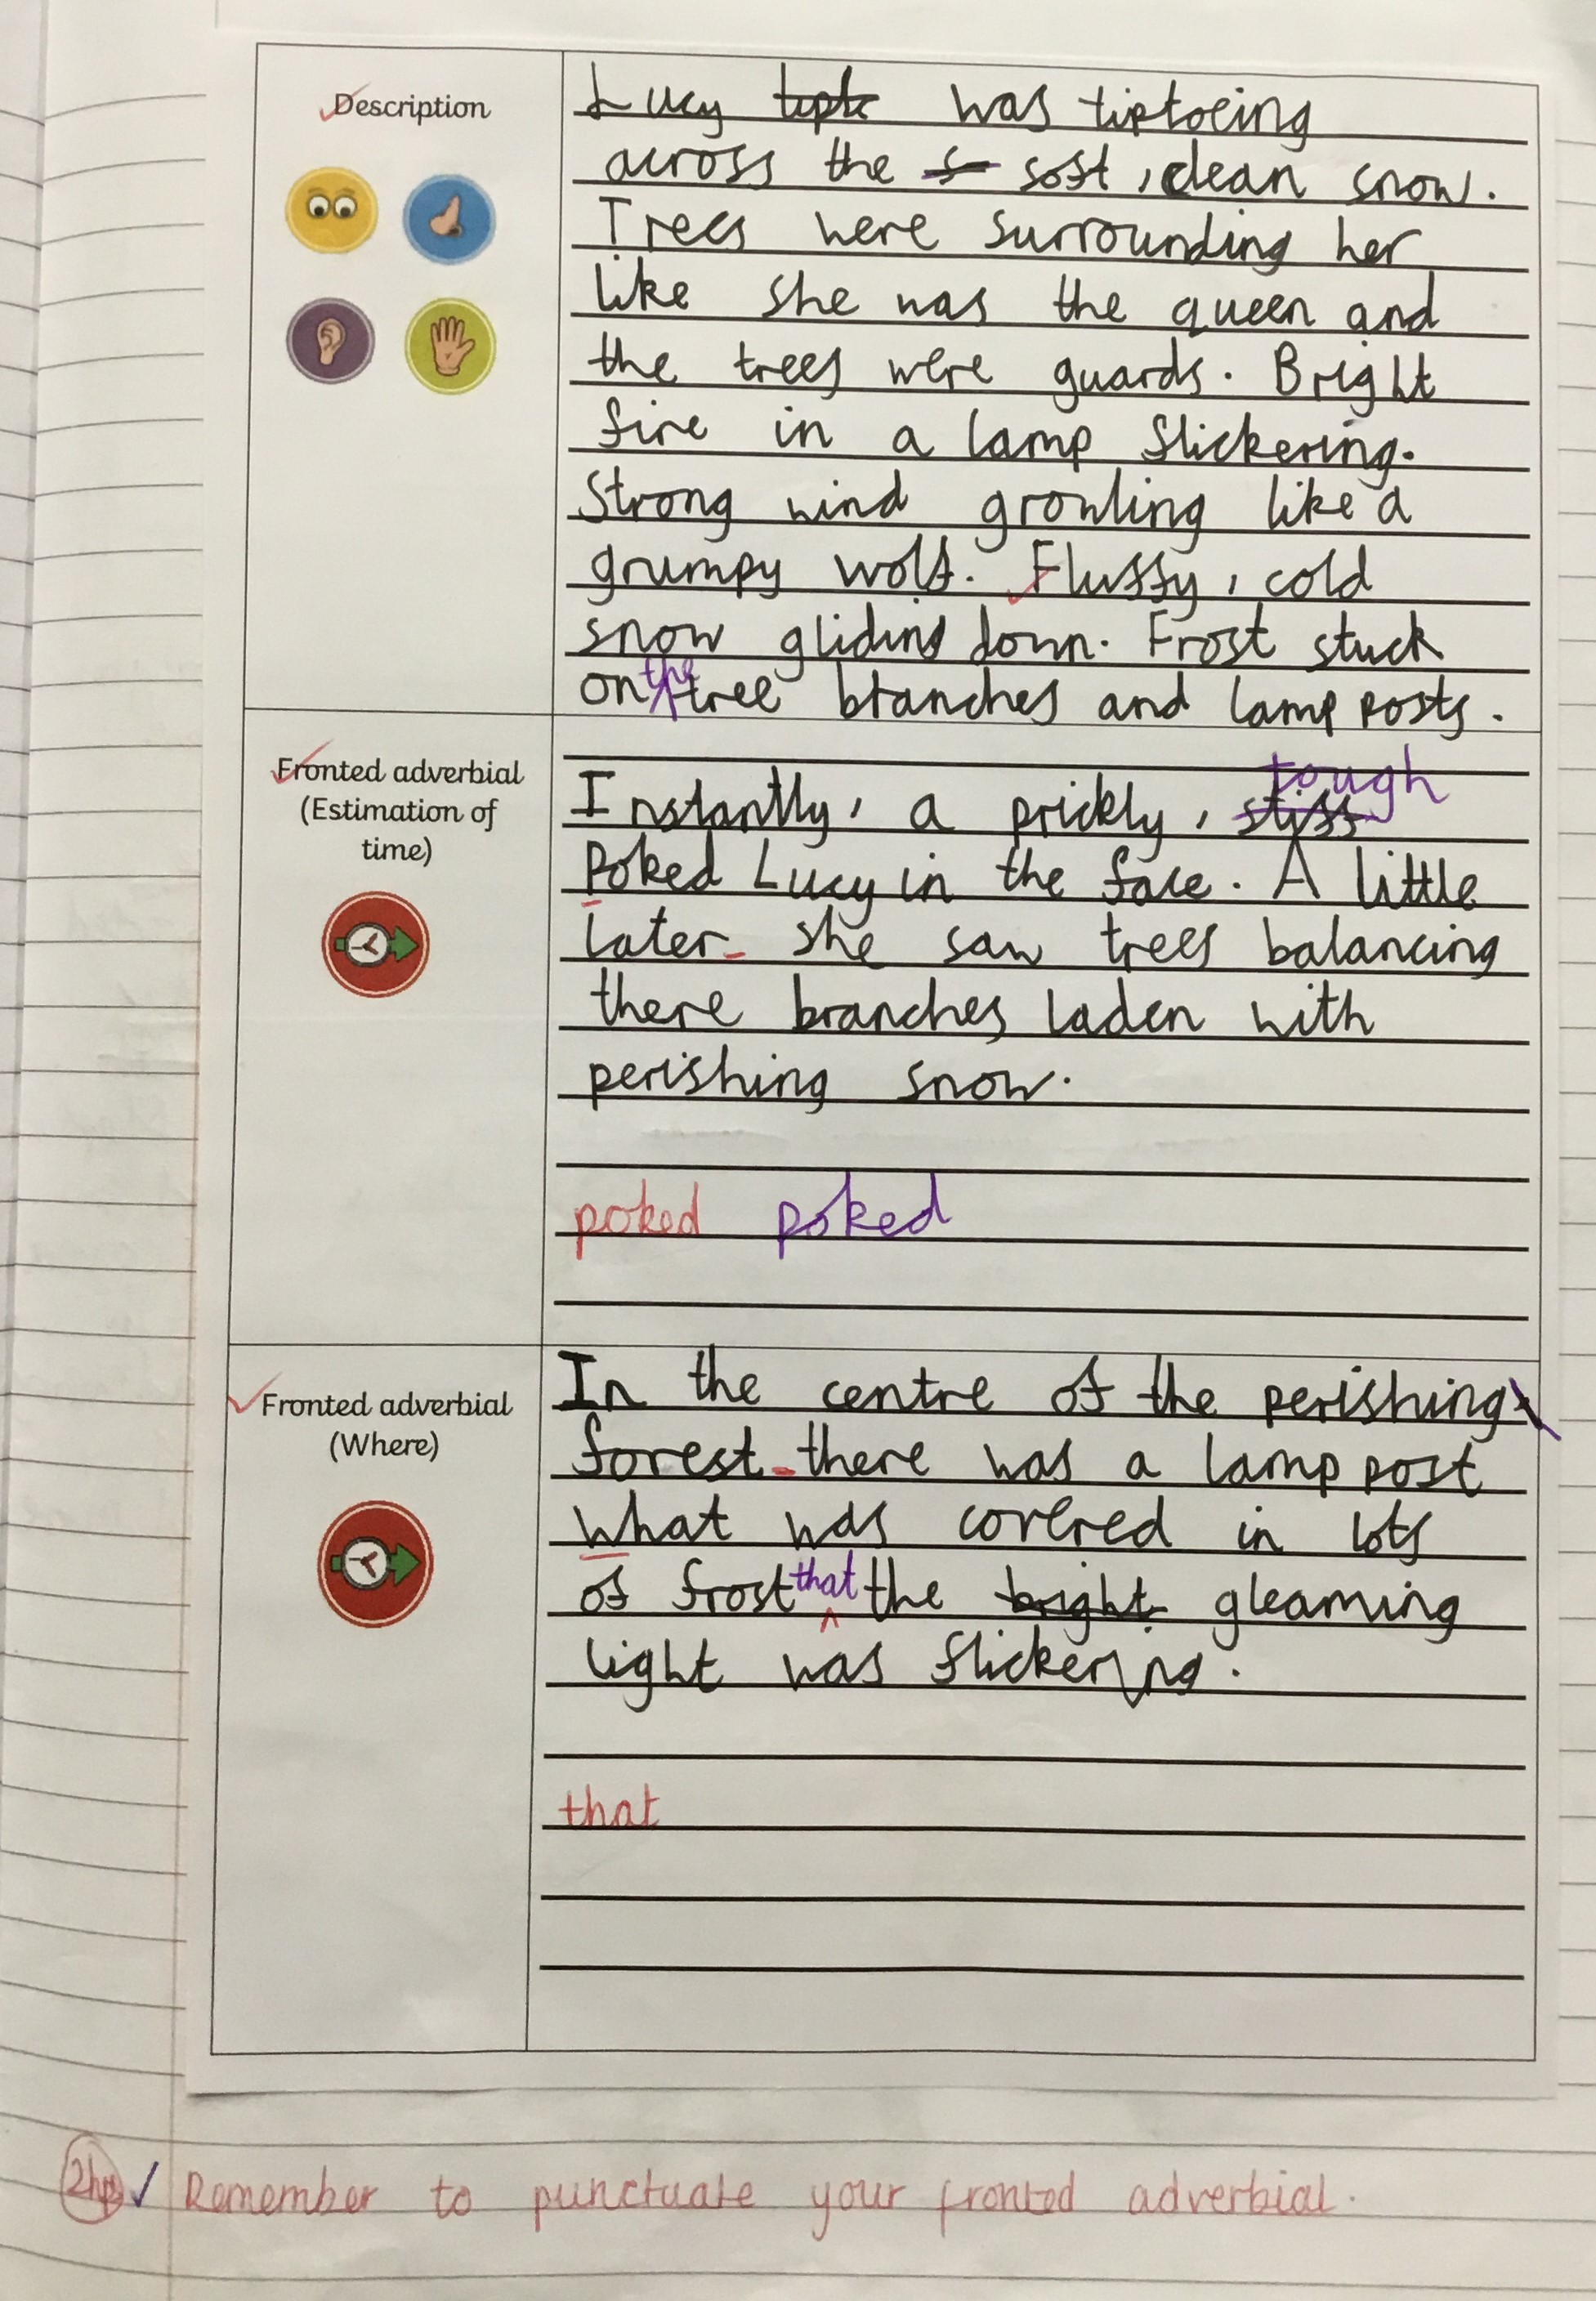 Description
Lucy was tiptoeing
across the soft, clean snow.
Trees were surrounding her
like she was the queen and
the trees were guards. Bright
fire in a lamp flickering.
Strong wind growling like a
grumpy wolf. Fluffy, cold
snow gliding down. Frost stuck
on the tree branches and lamp posts.
Fronted adverbial
(Estimation of
time)
tough
Instantly, a prickly, stiff
Poked Lucy in the face. A little
later she saw trees balancing
there branches laden with
perishing snow.
poked poked
Fronted adverbial
(Where)
In the centre of the perishing
forest there was a lamp post
what was covered in lots
of frost that the bright gleaming
light was flickering.
that
Remember to punctuate your fronted adverbial.